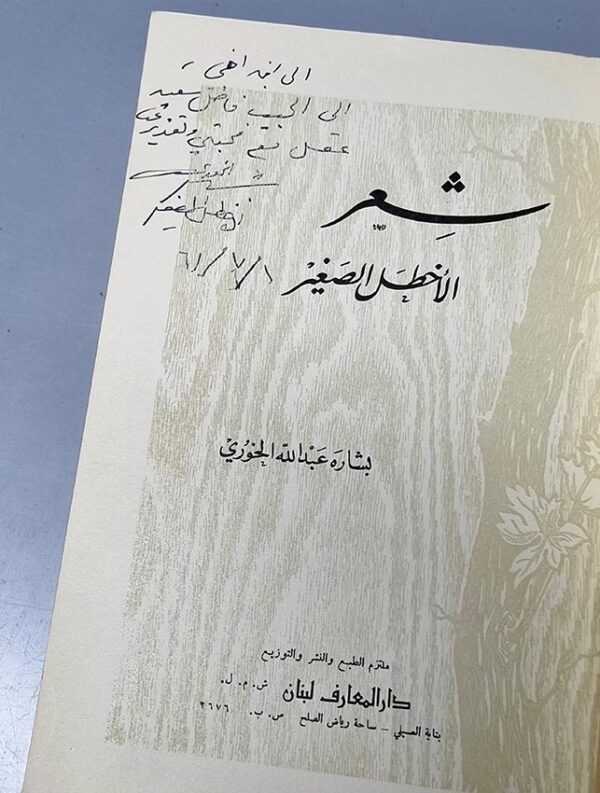 الى ابن اخي،
الى الحبيب فاضل سعيد
عقل مع محبتي وتقديري
الاخطل الصغير
٦١/٧/١
شِعر
الأخطل الصَغيْر
بشاره عَبْدالله الخوُريْ
ملتزم الطبع والنشر والتوزيع
دار المعارف لبنان ش.م.ل.
بناية العسيلي - ساحة رياض الصلح ص.ب. ٢٦٧٦